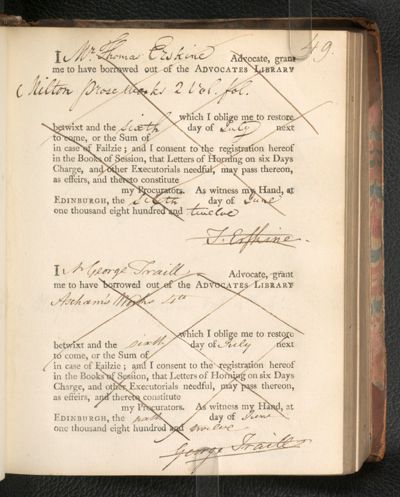 49.
I Mr. Thomas Erskine Advocate, grant
me to have borrowed out of the ADVOCATES LIBRARY
Milton Prose Works 2 Vol. fol.
which I oblige me to restore
betwixt and the sixth day of July next
to come, or the Sum of
in case of Failzie; and I consent to the registration hereof
in the Books of Session, that Letters of Horning on six Days
Charge, and other Executorials needful, may pass thereon,
as effeirs, and thereto constitute
my Procurators. As witness my Hand, at
EDINBURGH, the sixth day of June
one thousand eight hundred and twelve
T. Erskine.
I Mr George Traill Advocate, grant
me to have borrowed out of the ADVOCATES LIBRARY
Ascham's Works 4to
which I oblige me to restore
betwixt and the sixth day of July next
to come, or the Sum of
in case of Failzie; and I consent to the registration hereof
in the Books of Session, that Letters of Horning on six Days
Charge, and other Executorials needful, may pass thereon,
as effeirs, and thereto constitute
my Procurators. As witness my Hand, at
EDINBURGH, the day of June
one thousand eight hundred and twelve
George Traill